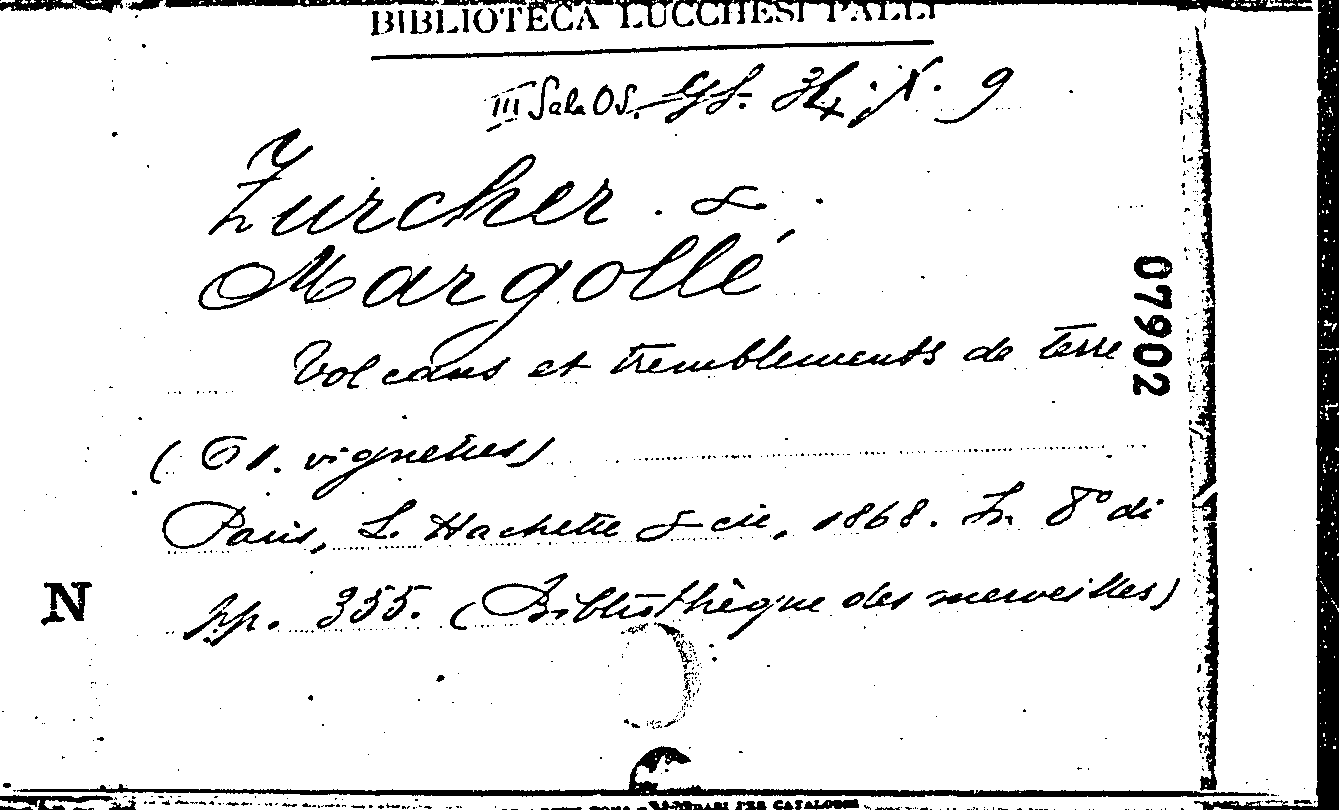 BIBLIOTECA LUCCHESI PALLI
III Sala OS. 34; X. 9
Zurcher . & .
Margollé
Volcans et tremblements de terre
07902
(61. vignettes)
Paris, L. Hachette & cie, 1868. In 8° di
N
pp. 355. (Bibliothèque des merveilles)
PER CATALOGHI